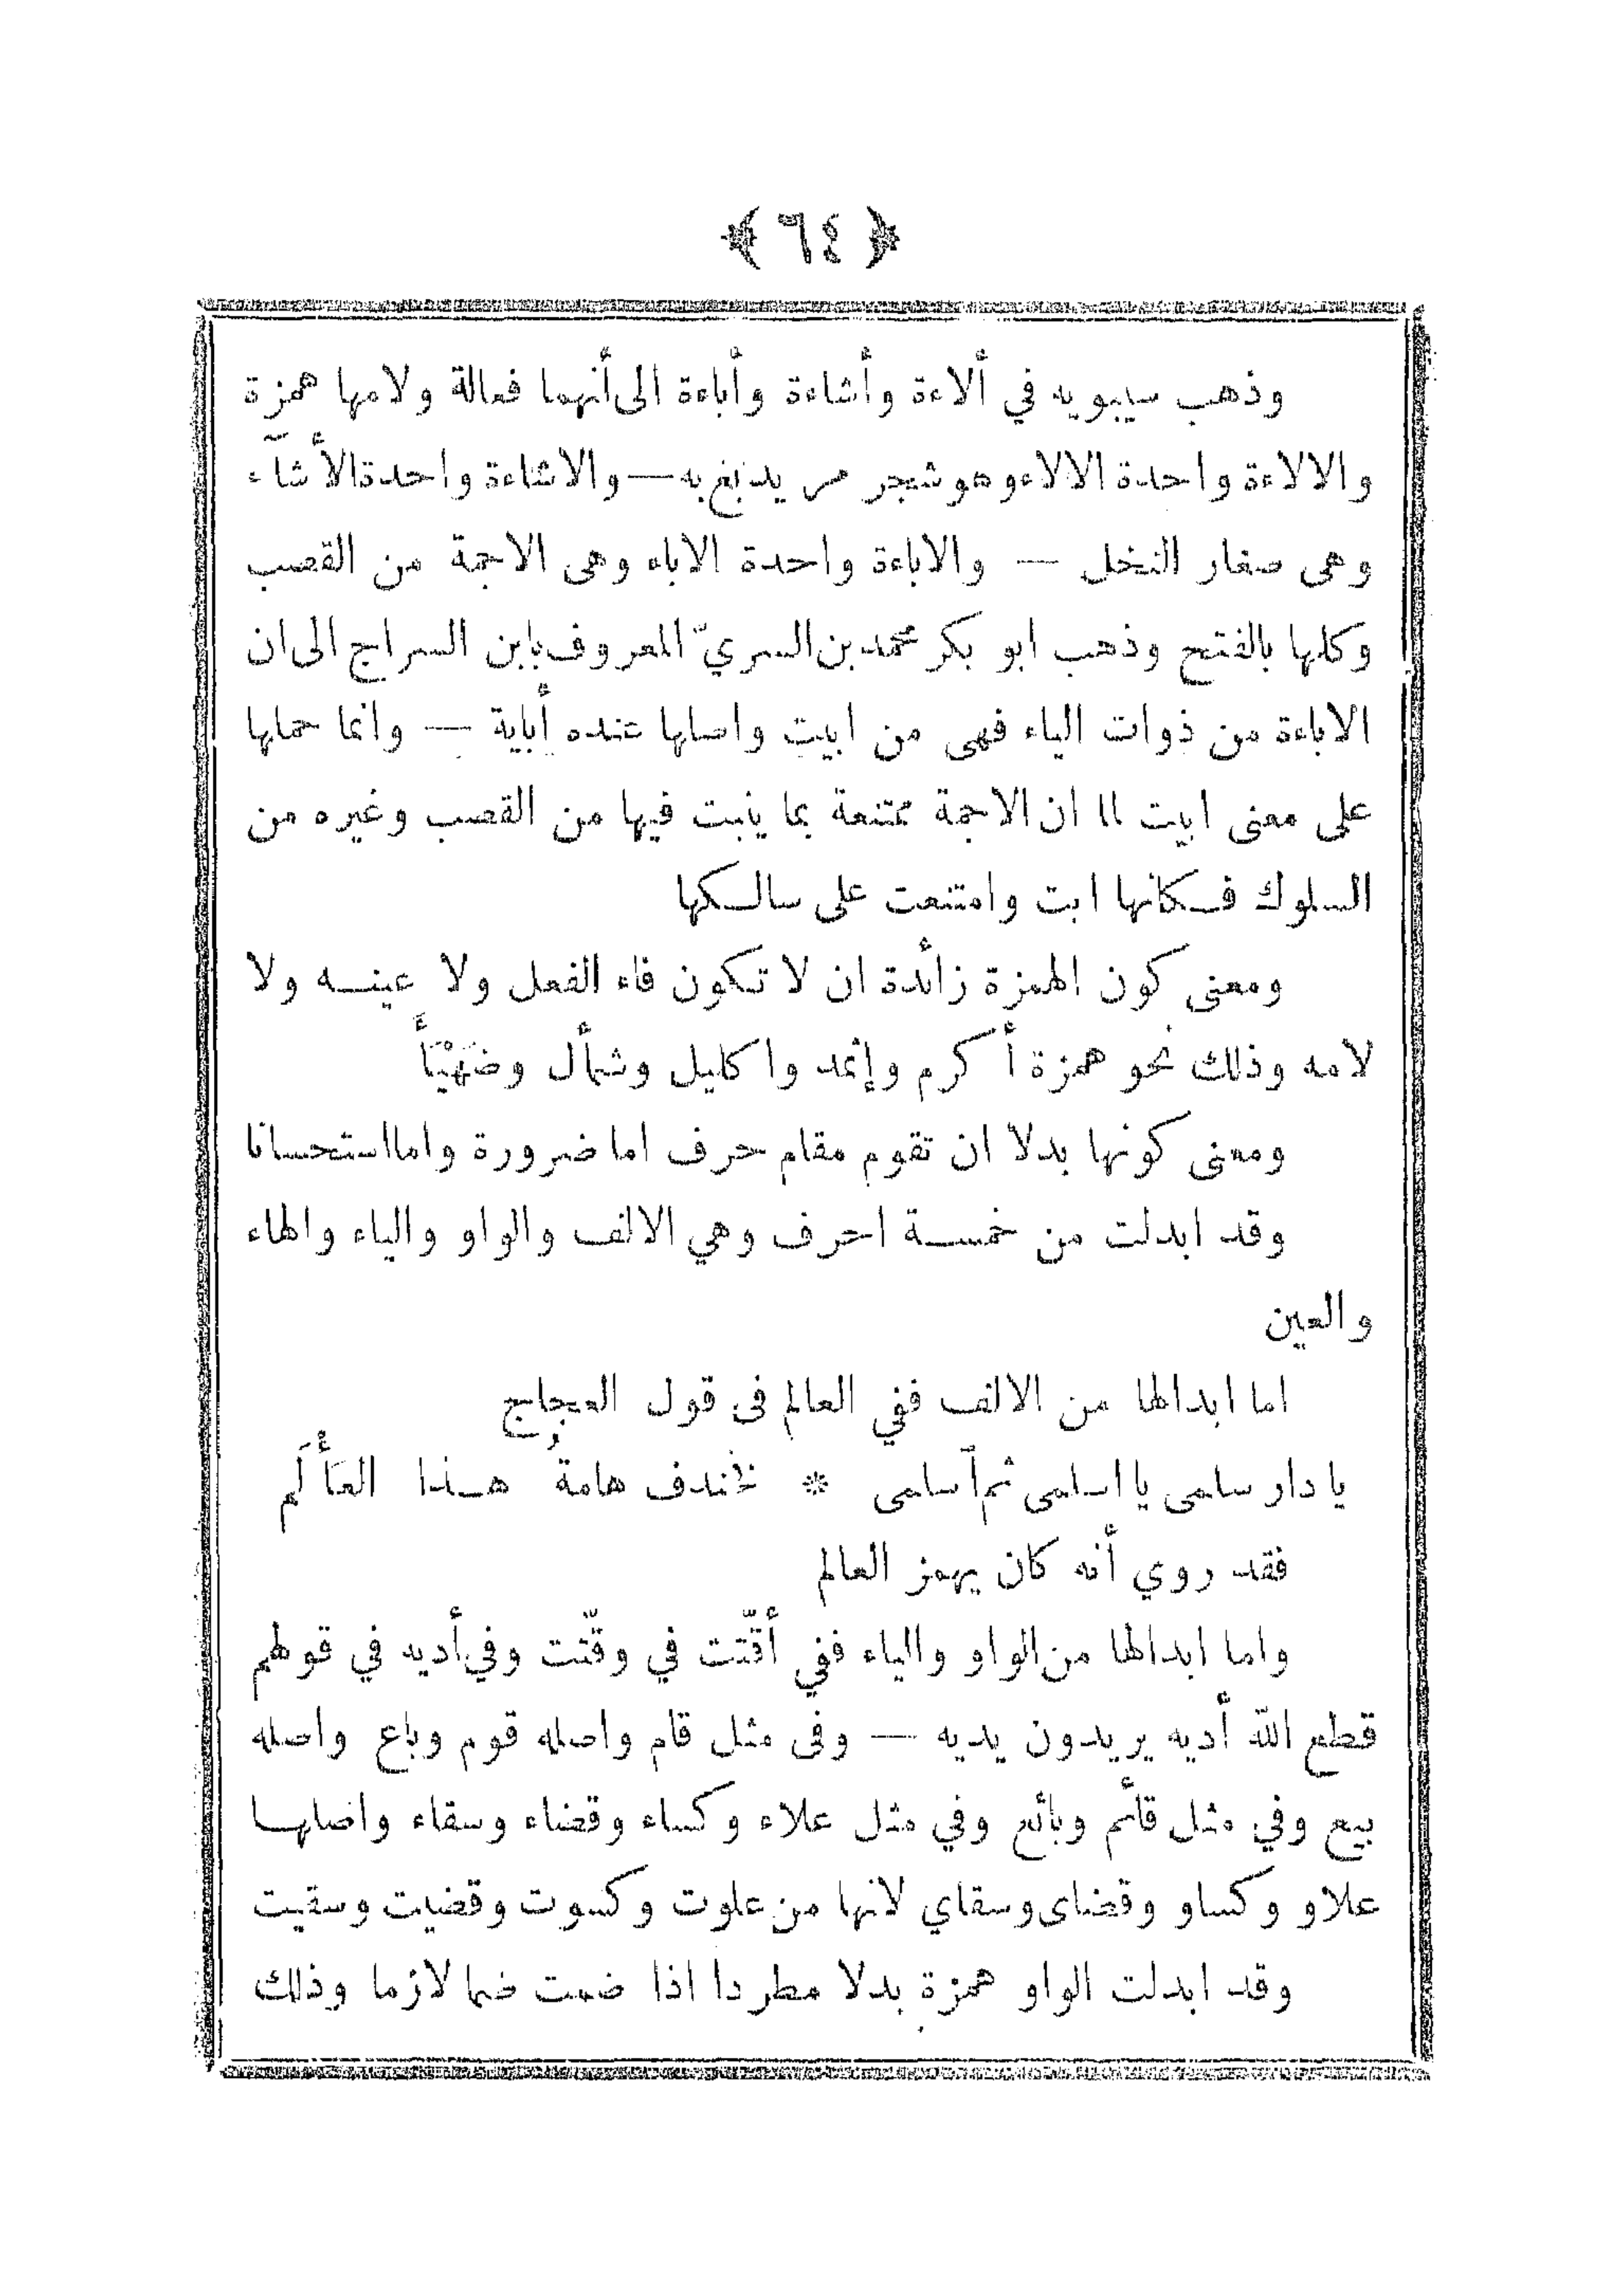 ﴿ ٦٤ ﴾
وذهب سيبويه في ألاءة وأشاءة وأباءة الى أنهما فعالة ولامها همزة
والالاءة واحدة الالاء وهو شجر مر يدبغ به — والاشاءة واحدة الأشآء
وهى صغار النخل — والاباءة واحدة الاباء وهى الاجمة من القصب
وكلها بالفتح وذهب ابو بكر محمد بن السريّ المعروف بابن السراج الى ان
الاباءة من ذوات الياء فهى من ابيت واصلها عنده أباية — وانما حملها
على معنى ابيت لما ان الاجمة ممتنعة بما ينبت فيها من القصب وغيره من
السلوك فكانها ابت وامتنعت على سالكها
ومعنى كون الهمزة زائدة ان لا تكون فاء الفعل ولا عينه ولا
لامه وذلك نحو همزة أكرم وإثمد واكليل وشمأل وضَهْيَأَ
ومعنى كونها بدلا ان تقوم مقام حرف اما ضرورة واما استحسانا
وقد ابدلت من خمسة احرف وهي الالف والواو والياء والهاء
والعين
اما ابدالها من الالف ففي العالم فى قول العجاج
يا دار سلمى يا اسلمى ثم آسلمى * فخندف هامةُ هذا العَأْلَم
فقد روي أنه كان يهمز العالم
واما ابدالها من الواو والياء ففي أقّتت في وقّتت وفي أديه في قولهم
قطع الله أديه يريدون يديه — وفى مثل قام واصله قوم وباع واصله
بيع وفي مثل قائم وبائع وفي مثل علاء وكساء وقضاء وسقاء واصلها
علاو وكساو وقضاى وسقاي لانها من علوت وكسوت وقضيت وسقيت
وقد ابدلت الواو همزة بدلا مطردا اذا ضمت ضما لازما وذلك